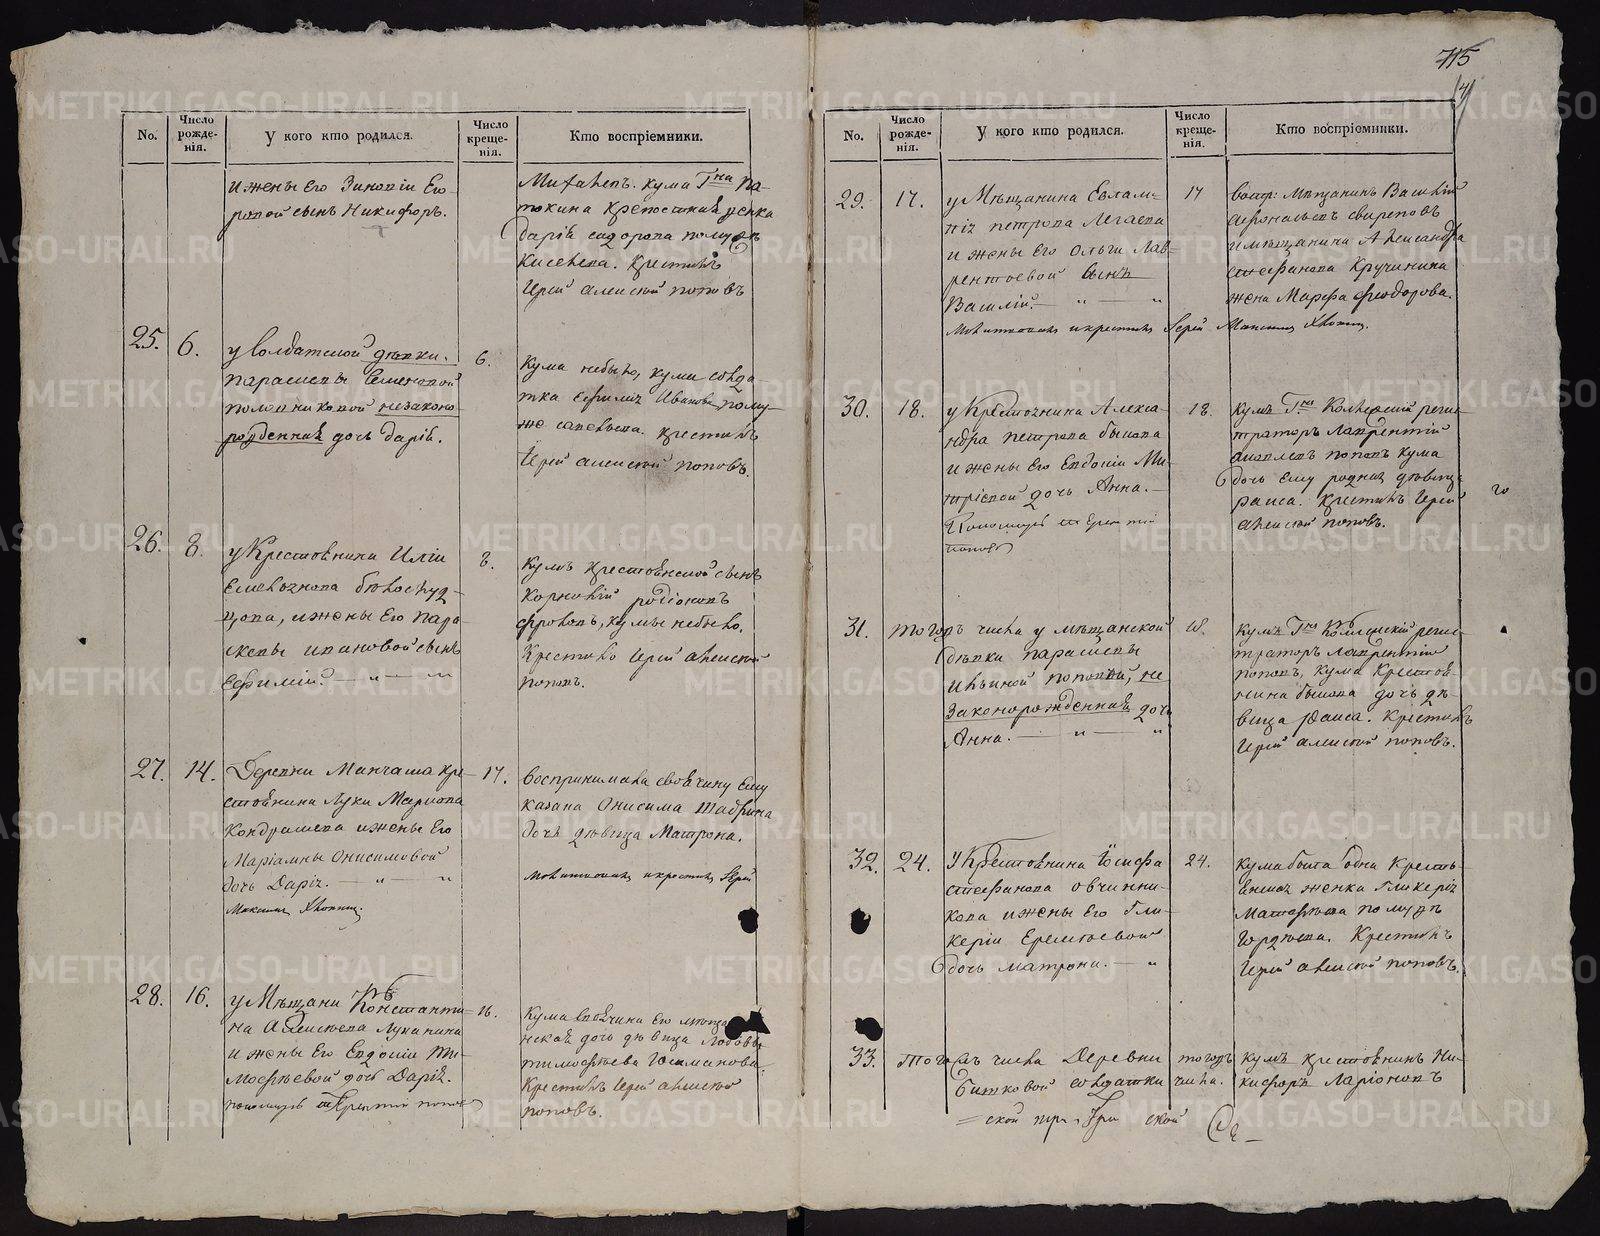 715
No.
Число рожде-нія.
У кого кто родился.
Число креще-нія.
Кто воспріемники.
и жены его Зиновіи Его-
ровой сынъ Никифоръ.
кума Гжи Па-
токина крепостная женка
Дарія Сидорова по мужѣ
Киселева. Крестилъ
Іерей Алексѣй Поповъ
25.
6.
у солдатской дѣвки
Парасковы Семеновой
незаконо-
рожденная дочь Дарія.
6.
Кума небыло, кума солда-
тка Ефимія Иванова по му-
жѣ Савельева. Крестилъ
Іерей Алексѣй Поповъ.
26.
8.
у Крестьянина Иліи
Бѣлослуд-
цова, и жены его Пара-
сковы Ивановой сынъ
Ефимій. — " — "
8.
Кумъ крестьянской сынъ
Корнилій Родіоновъ
Фроловъ, кумы небыло.
Крестилъ Іерей Алексѣй
Поповъ.
27.
14.
Деревни Манчажа кре-
стьянина Луки Маркова
Кондрашева и жены его
Маріамны Онисимовой
дочь Дарія. — " — "
Максимъ Хлопинъ.
17.
Воспринимала своячину ему
Онисима
дочь дѣвица Матрона.
Молитвовалъ и крестилъ Іерей
28.
16.
у Мѣщани Константи-
на Алексѣева Луканина
и жены его Евдокіи Ти-
мофѣевой дочь Дарія.
пономарь Терентій Поповъ
16.
Кума своячина его мѣща-
нская дочь дѣвица Любовь
Тимофѣева
Крестилъ Іерей Алексѣй
Поповъ.
No.
Число рожде-нія.
У кого кто родился.
Число креще-нія.
Кто воспріемники.
29.
17.
у Мѣщанина Евлам-
пія Петрова Легаева
и жены его Ольги Лав-
рентьевой сынъ
Василій. — " — "
17
воспр: Мѣщанинъ Василій
Афонасьевъ Свиреповъ
и мѣщанина Александра
Стефанова Кручинина
жена Марфа Феодорова.
Молитвовалъ и крестилъ Іерей Максимъ Хлопинъ.
30.
18.
у Крестьянина Алекса-
ндра Петрова Быкова
и жены его Евдокіи Ми-
тріевой дочь Анна. —
Пономарь Терентій
Поповъ
18.
Кумъ Гнъ Колежскій реги-
страторъ Лаврентій
Поповъ кума
дочь ему родная дѣвица
Раиса. Крестилъ Іерей
Алексѣй Поповъ.
31.
Тогожъ числа у мѣщанской
дѣвки Парасковы
Ильиной Поповой, не
законорожденная дочь
Анна. — " — "
18.
Кумъ Гнъ Колежскій реги-
страторъ Лаврентій
Поповъ, кума крестья-
нина Быкова дочь дѣ-
вица Раиса. Крестилъ
Іерей Алексѣй Поповъ.
32.
24.
У Крестьянина Іосифа
Стефанова Овчинни-
кова и жены его Гли-
керіи Еремѣевой
дочь Матрона. — "
24.
Кума была одна кресть-
янская женка Гликерія
Матфѣева по мужѣ
Гордѣева. Крестилъ
Іерей Алексѣй Поповъ.
33.
Тогожъ числа Деревни
Битковой солдатки
тогожъ
числа.
Кумъ крестьянинъ Ни-
кифоръ Ларіоновъ